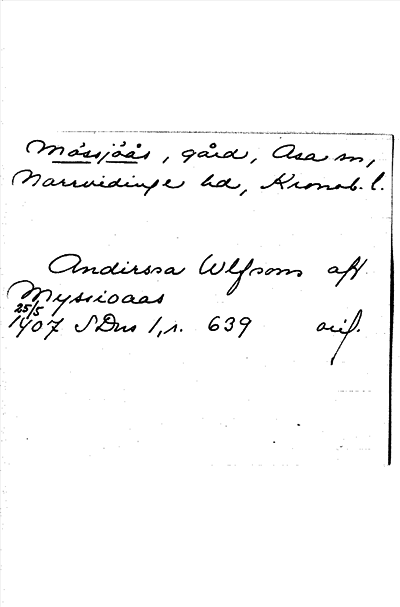 Mössjöås, gård, Asa sn,
Norrvidinge hd, Kronob. l.
Andirssa Wlfsons aff
Myssioaas
25/5
1407 SDns 1, s. 639 orig.